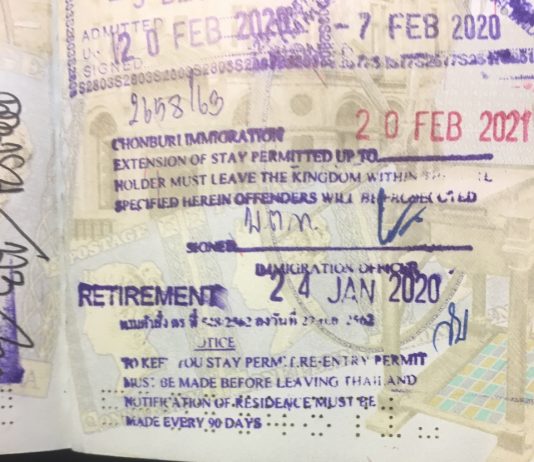 ADMITTED
20 FEB 2020
-7 FEB 2020
SIGNED
S2803S2803S2803S2803S2803S
2658/63
20 FEB 2021
CHONBURI IMMIGRATION
EXTENSION OF STAY PERMITTED UP TO
HOLDER MUST LEAVE THE KINGDOM WITHIN
SPECIFIED HEREIN OFFENDERS WILL BE PROSECUTED
SIGNED
IMMIGRATION OFFICER
RETIREMENT 24 JAN 2020
2562
OTICE
TO KEE YOU STAY PERMIT.RE-ENTRY PERMIT
MUST BE MADE BEFORE LEAVING THAILAND
NOTIFICATION OF RESIDENCE MUST BE
MADE EVERY 90 DAYS